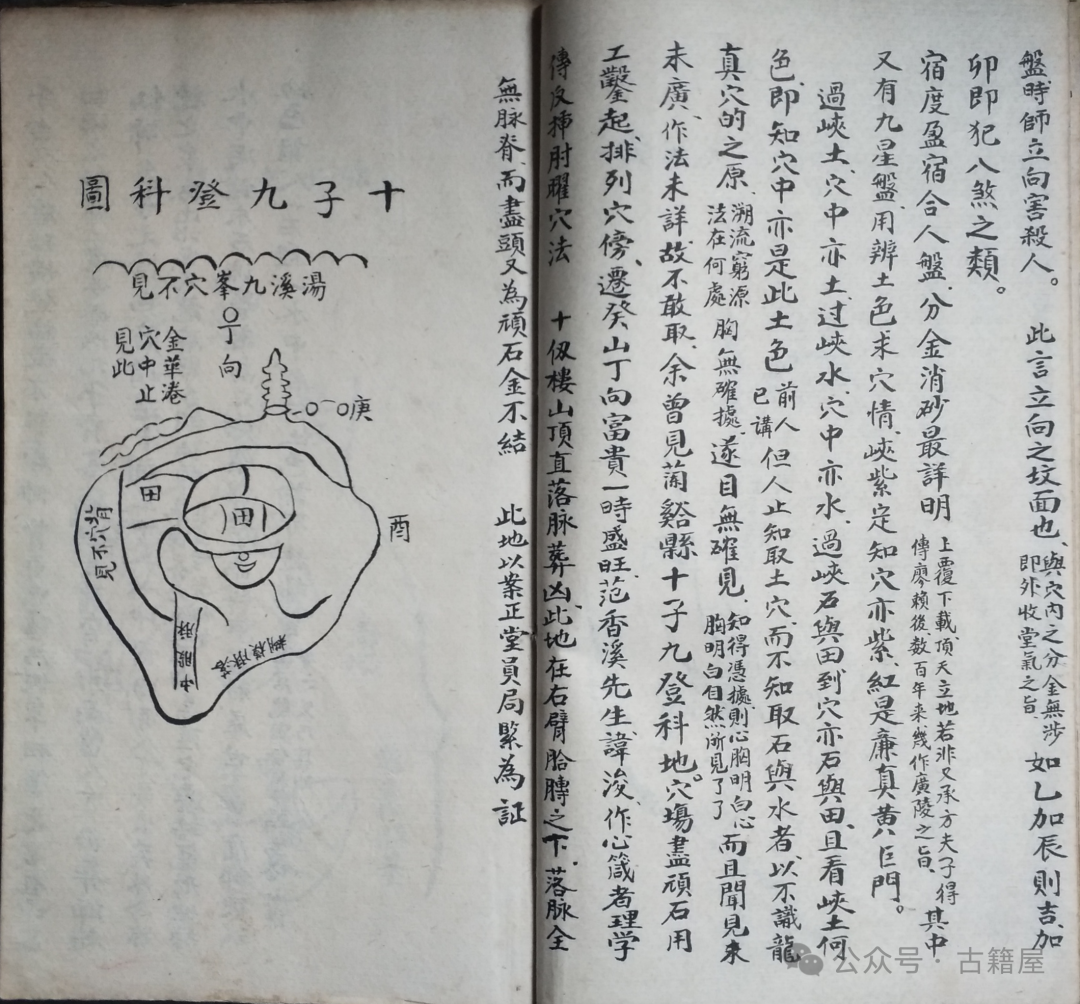 盤、時師立向害殺人。　此言立向之坟面也、與穴內之分金無涉即外收堂氣之旨　如乙加辰則吉、加
卯即犯八煞之類。
宿度盈宿合人盤、分金消砂最詳明　上覆下載、頂天立地若非又承方夫子得傳廖賴後、数百年来幾作廣陵之旨、　其中
又有九星盤、用辨土色求穴情、峽紫定知穴亦紫、紅是廉貞黄八巨門。
過峽土、穴中亦土、过峽水、穴中亦水、過峽石與田、到穴亦石與田、且看峽土何
色、即知穴中亦是此土色　前人已講　但人止知取土穴、而不知取石與水者、以不識龍
真穴的之原、溯流窮源法在何處　胸無確據、遂目無確見、知得憑據、則心胸明白、心胸明白自然漸見了了　而且聞見未
未廣、作法未詳、故不敢取、余曾見蘭谿縣十子九登科地。穴塲盡頑石用
工鑿起、排列穴傍、遷癸山丁向富貴一時盛旺、范香溪先生、諱浚、作心箴者理学
傳反揷肘曜穴法　十伋樓山頂直落脉葬凶、此地在右臂胎膊之下、落脉全
無脉脊、而盡頭又為頑石金不結　此地以案正堂員局緊為証
十子九登科圖
湯溪九峯穴不見
丁向
金華港
穴中止
見此
庚
酉
背穴不見
田
田
中腦脉